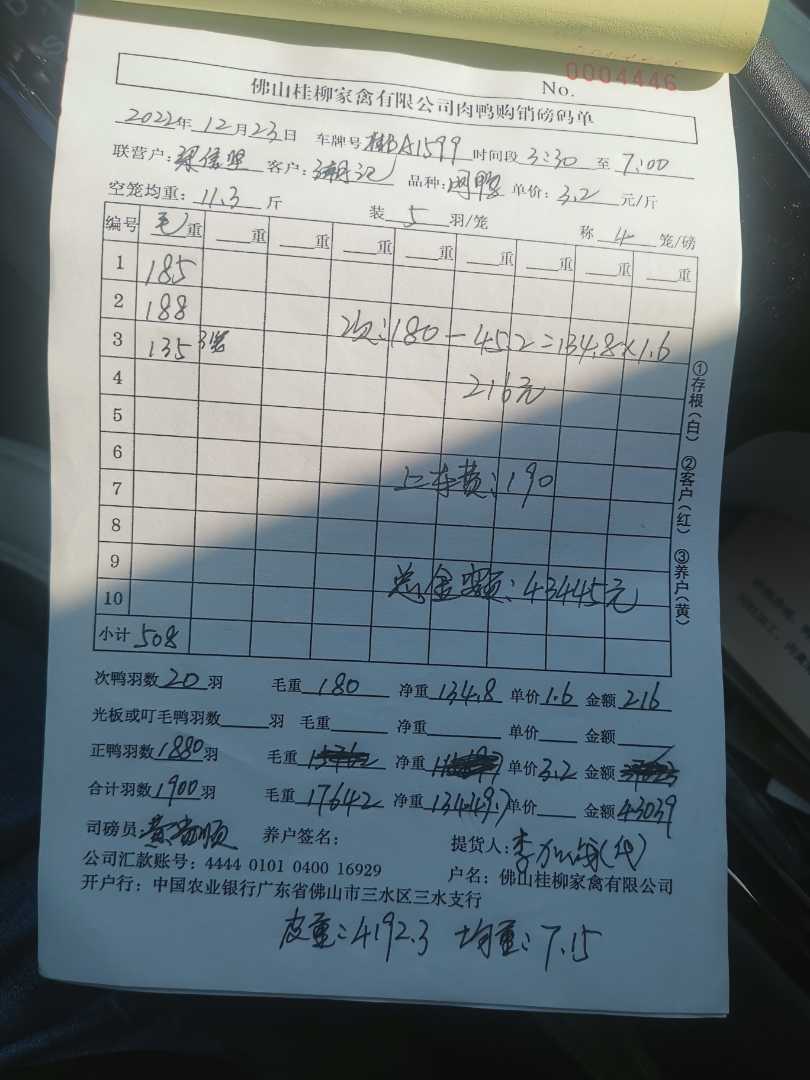 No. 0004446
佛山桂柳家禽有限公司肉鸭购销磅码单
2022年12月23日 车牌号 A1599 时间段 3:30 至 7:00
联营户: 客户: 品种: 单价: 3.2 元/斤
空笼均重: 11.3 斤 装 5 羽/笼 称 4 笼/磅
编号 毛重 重 重 重 重 重 重 重 重
1 185
2 188
3 135 3笼 次:180-45.2=134.8×1.6
4 216元
5
6
7 上车费:190
8
9
10 总金额:43445元
小计 508
①存根(白) ②客户(红) ③养户(黄)
次鸭羽数 20 羽 毛重 180 净重 134.8 单价 1.6 金额 216
光板或叮毛鸭羽数 羽 毛重 净重 单价 金额
正鸭羽数 1880 羽 毛重 净重 单价 3.2 金额
合计羽数 1900 羽 毛重 17642 净重 13449.7 单价 金额 43039
司磅员: 养户签名: 提货人:
公司汇款账号: 4444 0101 0400 16929 户名: 佛山桂柳家禽有限公司
开户行: 中国农业银行广东省佛山市三水区三水支行
皮重:4192.3 均重:7.15